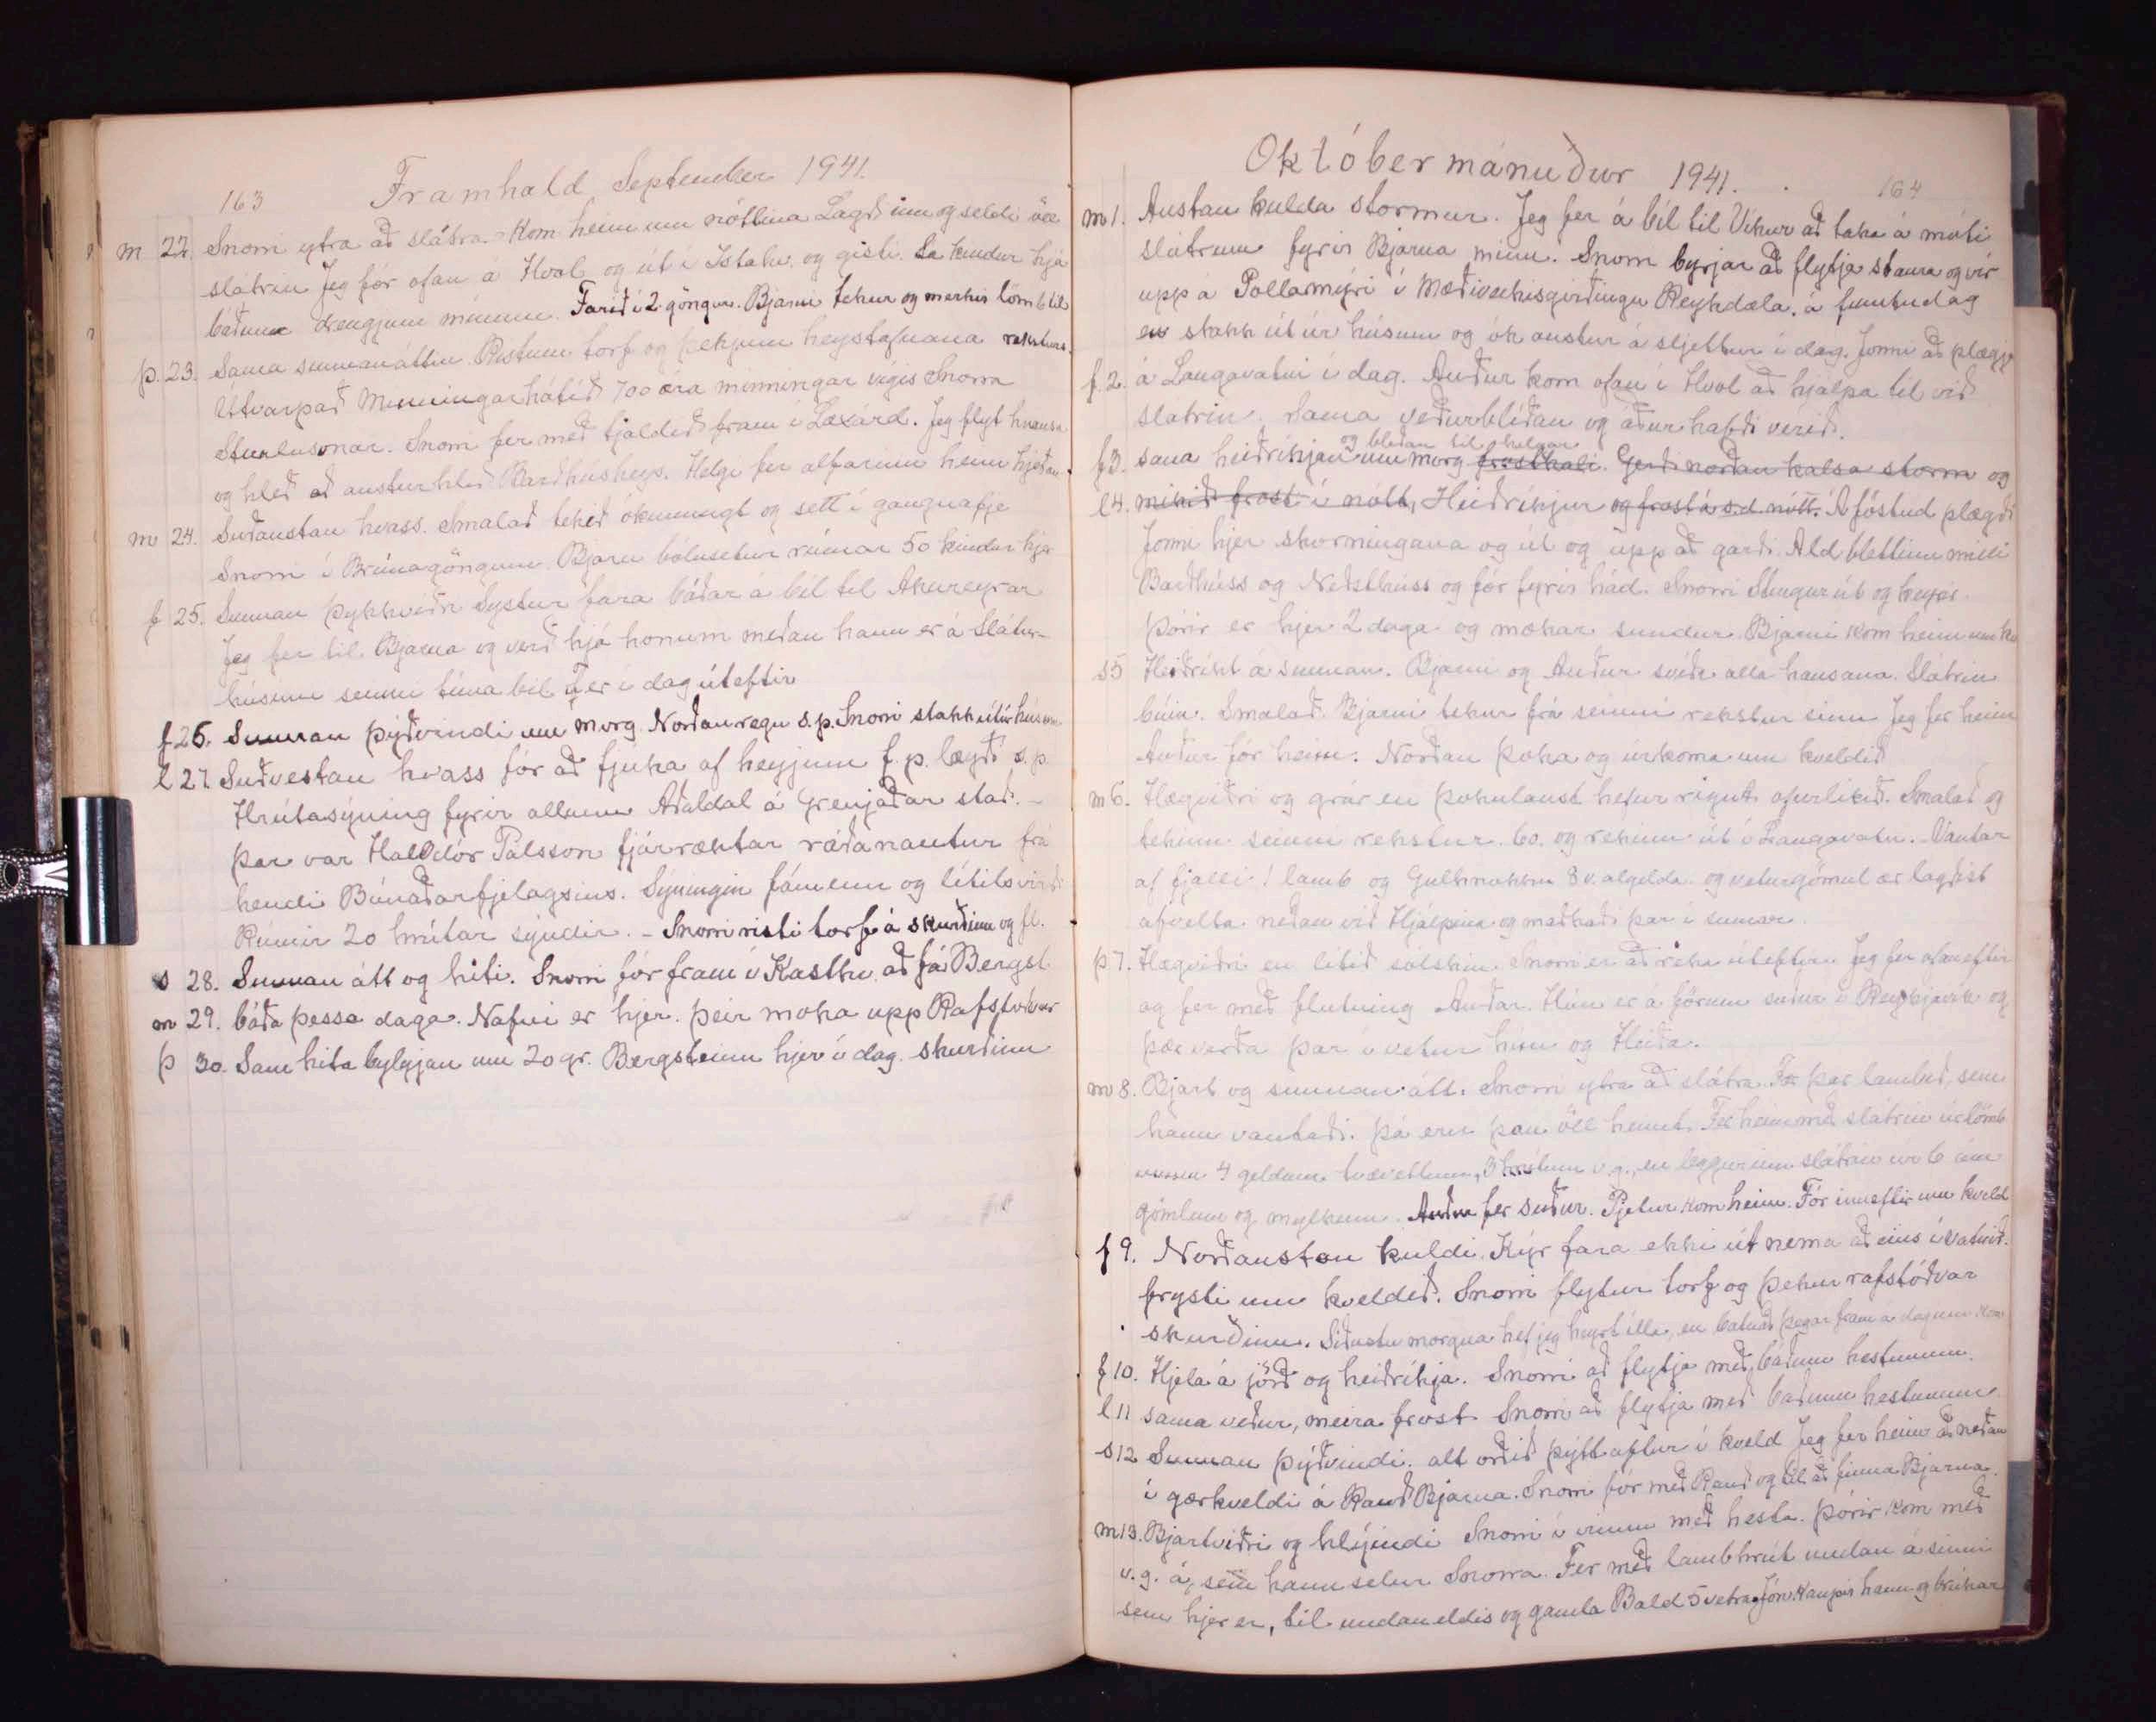 163 Framhald September 1941.
m 22. Snorri ytra að slátra. Kom heim um nóttina Lagði inn og seldi öll
slátrin Jeg fór ofan á Hvol og út í Ístahv. og gisti. kindur hjá
báðum drengjum mínum. Farið í 2 göngur. Bjarni tekur og merkir lömb til
þ. 23. Sama sunnanáttin Ristum torf og þekjum heystafnana rekstrar.
Útvarpað Minningarhátíð 700 ára minningar vígis Snorra
Sturlusonar. Snorri fer með tjaldið fram í Laxárd. Jeg flyt hnausa
og hleð að austurhlið Barðhúsheys. Helge fer alfarinn heim hjeðan.
m 24. Suðaustan hvass. Smalað tekið ókunnugt og sett í gangnafje
Snorri í Brúnagöngum. Bjarni bólusetur rúmar 50 kindur hjer
f 25. Sunnan þykkviðri Systur fara báðar á bíl til Akureyrar
Jeg fer til Bjarna og verð hjá honum meðan hann er á Slátur-
húsinu sunnu tíma bil fer í dag úteftir
f 26. Sunnan þýðvindi um morg. Norðan regn s.p. Snorri stakk út úr húsum
l 27. Suðvestan hvass fór að fjuka af heyjum f.p. lægði s.p.
Hrútasýning fyrir allann Aðaldal á Grenjaðar stað. -
þar var Halldór Pálsson fjárræktar ráðanautur frá
hendi Búnaðarfjelagsins. Sýningin fámenn og lítilsvirði
Rúmir 20 hrútar sýndir. - Snorri risti torf á skurðinn og fl.
s 28. Sunnan átt og hiti. Snorri fór fram í Kasthv. að fá Bergst.
m 29. báða þessa daga. Nafni er hjer. þeir moka upp Rafstöðvar
þ 30. Sam hita bylgjan um 20 gr. Bergsteinn hjer í dag. skurðinn
Október mánuður 1941. 164
m 1. Austan kulda stormur. Jeg fer á bíl til Víkur að taka á móti
slátrum fyrir Bjarna minn. Snorri byrjar að flytja staura og vír
upp á Pollamýri í Mæðiveikisgirðingu Reykdæla. á fimtudag
er stakk út úr húsum og ók austur á sljettur í dag. Jonni að plægja
f. 2. á Laugavatni í dag. Auður kom ofan í Hvol að hjálpa til við
slátrin. Sama veðurblíðan og áður hafði verið.
f 3. sama heiðríkjan um morg frostkali. Gerði norðan kalsa storm og
og blíðan til helgar
l 4. mikið frost í nótt, Heiðríkjur og frost á s.d. nótt. Á föstud plægði
Jonni hjer skorningana og út og upp að garði. Ald blettinn milli
Barðhúss og Neðsthúss og fór fyrir hád. Snorri Stingur út og keyrir.
Þórir er hjer 2 daga og mokar sundur Bjarni kom heim um kv
s 5 Heiðríkt á sunnan. Bjarni og Auður svíða alla hausana. Slátrin
búin. Smalað. Bjarni tekur frá seinni rekstur sinn Jeg fer heim
Auður fór heim. Norðan þoka og úrkoma um kveldið
m 6. Hægviðri og grár en þokulaust hefur rignt ofurlítið. Smalað og
tekinn seinni rekstur. 60. og rekinn út í Laugavatn. - Vantar
af fjalli 1 lamb og 8 v. algelda og veturgömul ær lagðist
afvelta neðan við Hjálpina og maðkaði þar í sumar.
þ 7. Hægviðri en lítið sólskin. Snorri er að reka úteftir. Jeg fer ofaneftir
og fer með flutning Auðar. Hún er á förum suður í Reykjavík og
þær verða þar í vetur hún og Heiða.
m 8. Bjart og sunnan átt. Snorri ytra að slátra. Fær þar lambið, sem
hann vantaði. þá eru þau öll heimt. Fer heim með slátrin úr lömb
unum 4 geldum tvævetlum, 3 hrútum v.g., en leggur inn slátrin úr 6 ám
gömlum og mylkum. Auður fer suður. Pjetur kom heim. Fór inneftir um kveld
f 9. Norðaustan kuldi. Kýr fara ekki út nema að eins í vatnið.
frysti um kveldið. Snorri flytur torf og þekur rafstöðvar
skurðinn. Síðustu morgna hef jeg heyrt illa, en batnað þegar fram á daginn kom
f 10. Hjela á jörð og heiðríkja. Snorri að flytja með báðum hestunum.
l 11 sama veður, meira frost. Snorri að flytja með báðum hestunum
s 12 Sunnan þýðvindi. alt orðið þýtt aftur í kveld Jeg fer heim að neðan
í gærkveldi á Rauð Bjarna. Snorri fór með Rauð og til að finna Bjarna.
m 13. Bjartviðri og hlýindi Snorri í vinnu með hesta. Þórir kom með
v.g. á, sem hann selur Snorra. Fer með lambhrút undan á sinni
sem hjer er, til undaneldis og gamla Bald 5 vetra. Jón kaupir hann og brúkar